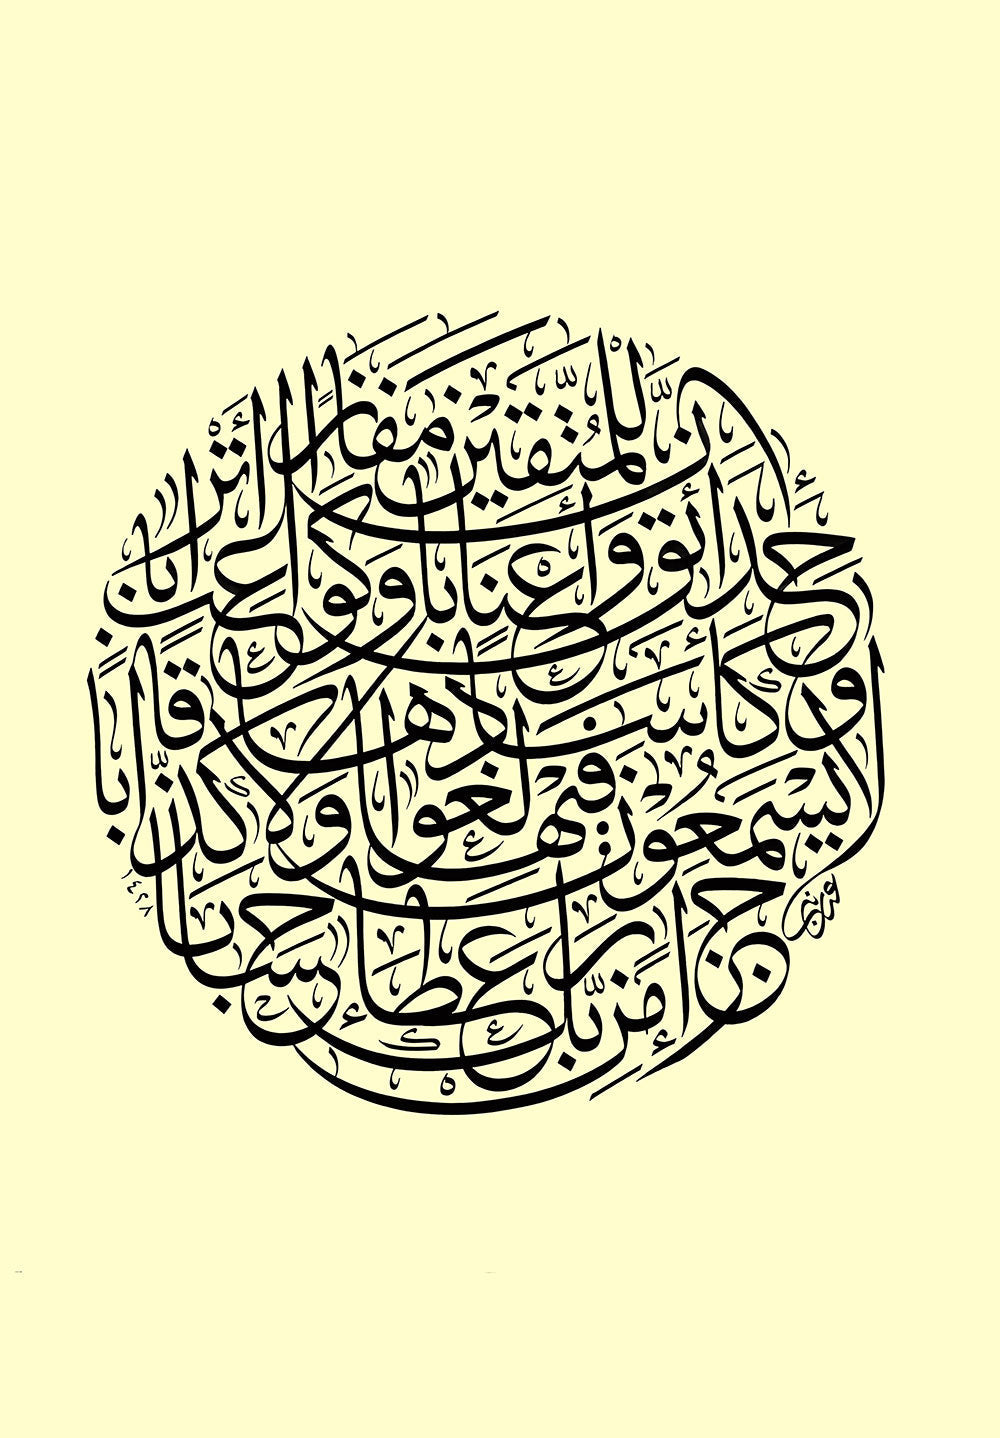 إن للمتقين مفازا
حدائق وأعنابا وكواعب أترابا
وكأسا دهاقا
لا يسمعون فيها لغوا ولا كذابا
جزاء من ربك عطاء حسابا
١٤٢٨